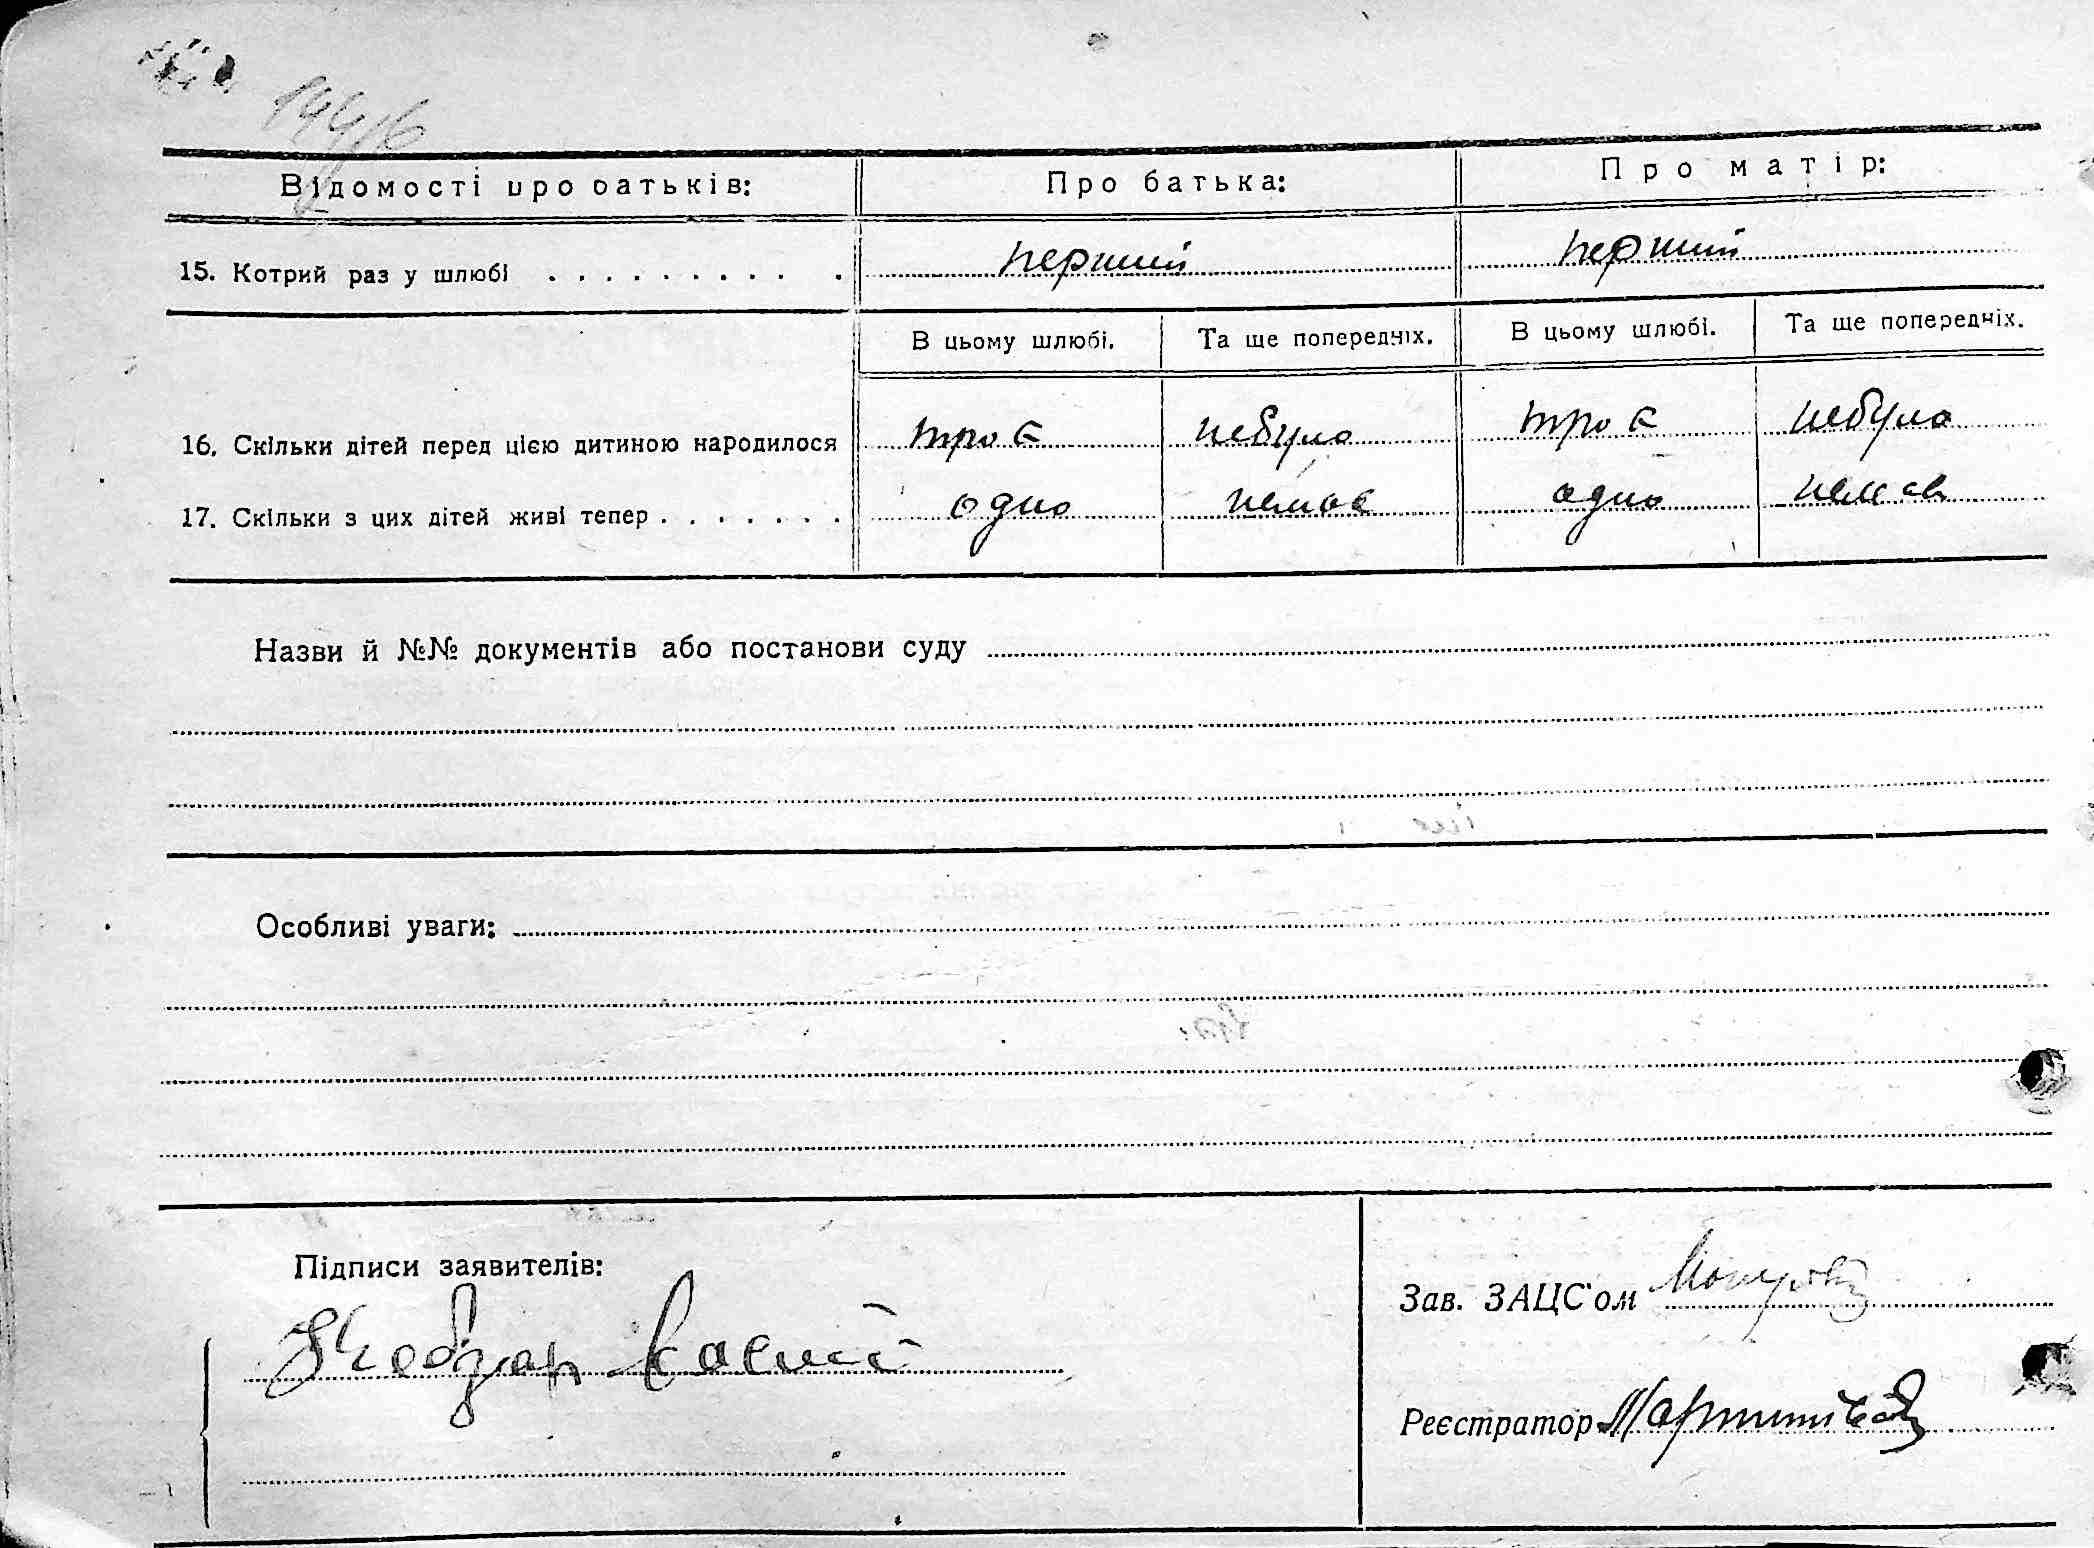 Відомості про батьків: Про батька: Про матір:
15. Котрий раз у шлюбі . . . . . . . . . . перший перший
В цьому шлюбі. Та ще попередніх. В цьому шлюбі. Та ще попередніх.
16. Скільки дітей перед цією дитиною народилося троє небуло троє небуло
17. Скільки з цих дітей живі тепер . . . . . . . одно немає одно немає
Назви й №№ документів або постанови суду
Особливі уваги:
Підписи заявителів:
Зав. ЗАЦС'ом
Реєстратор